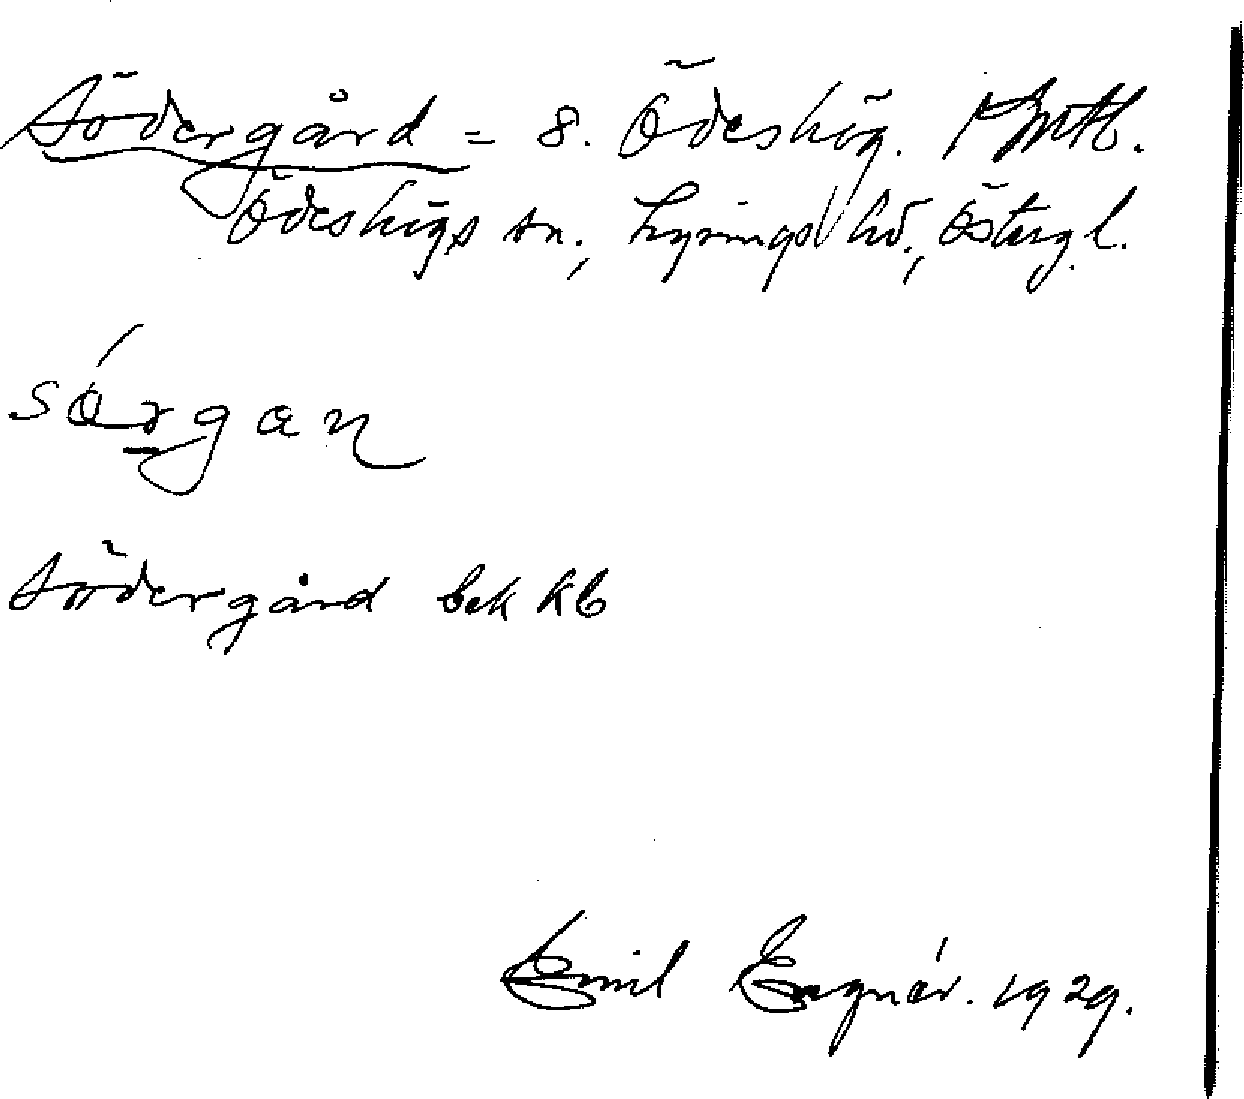 Södergård = 8. Ödeshög. 1 mtl.
Ödeshögs sn., Lysings hd., Östergl.
sárgan
Södergård bek kb
Emil Engnér. 1929.